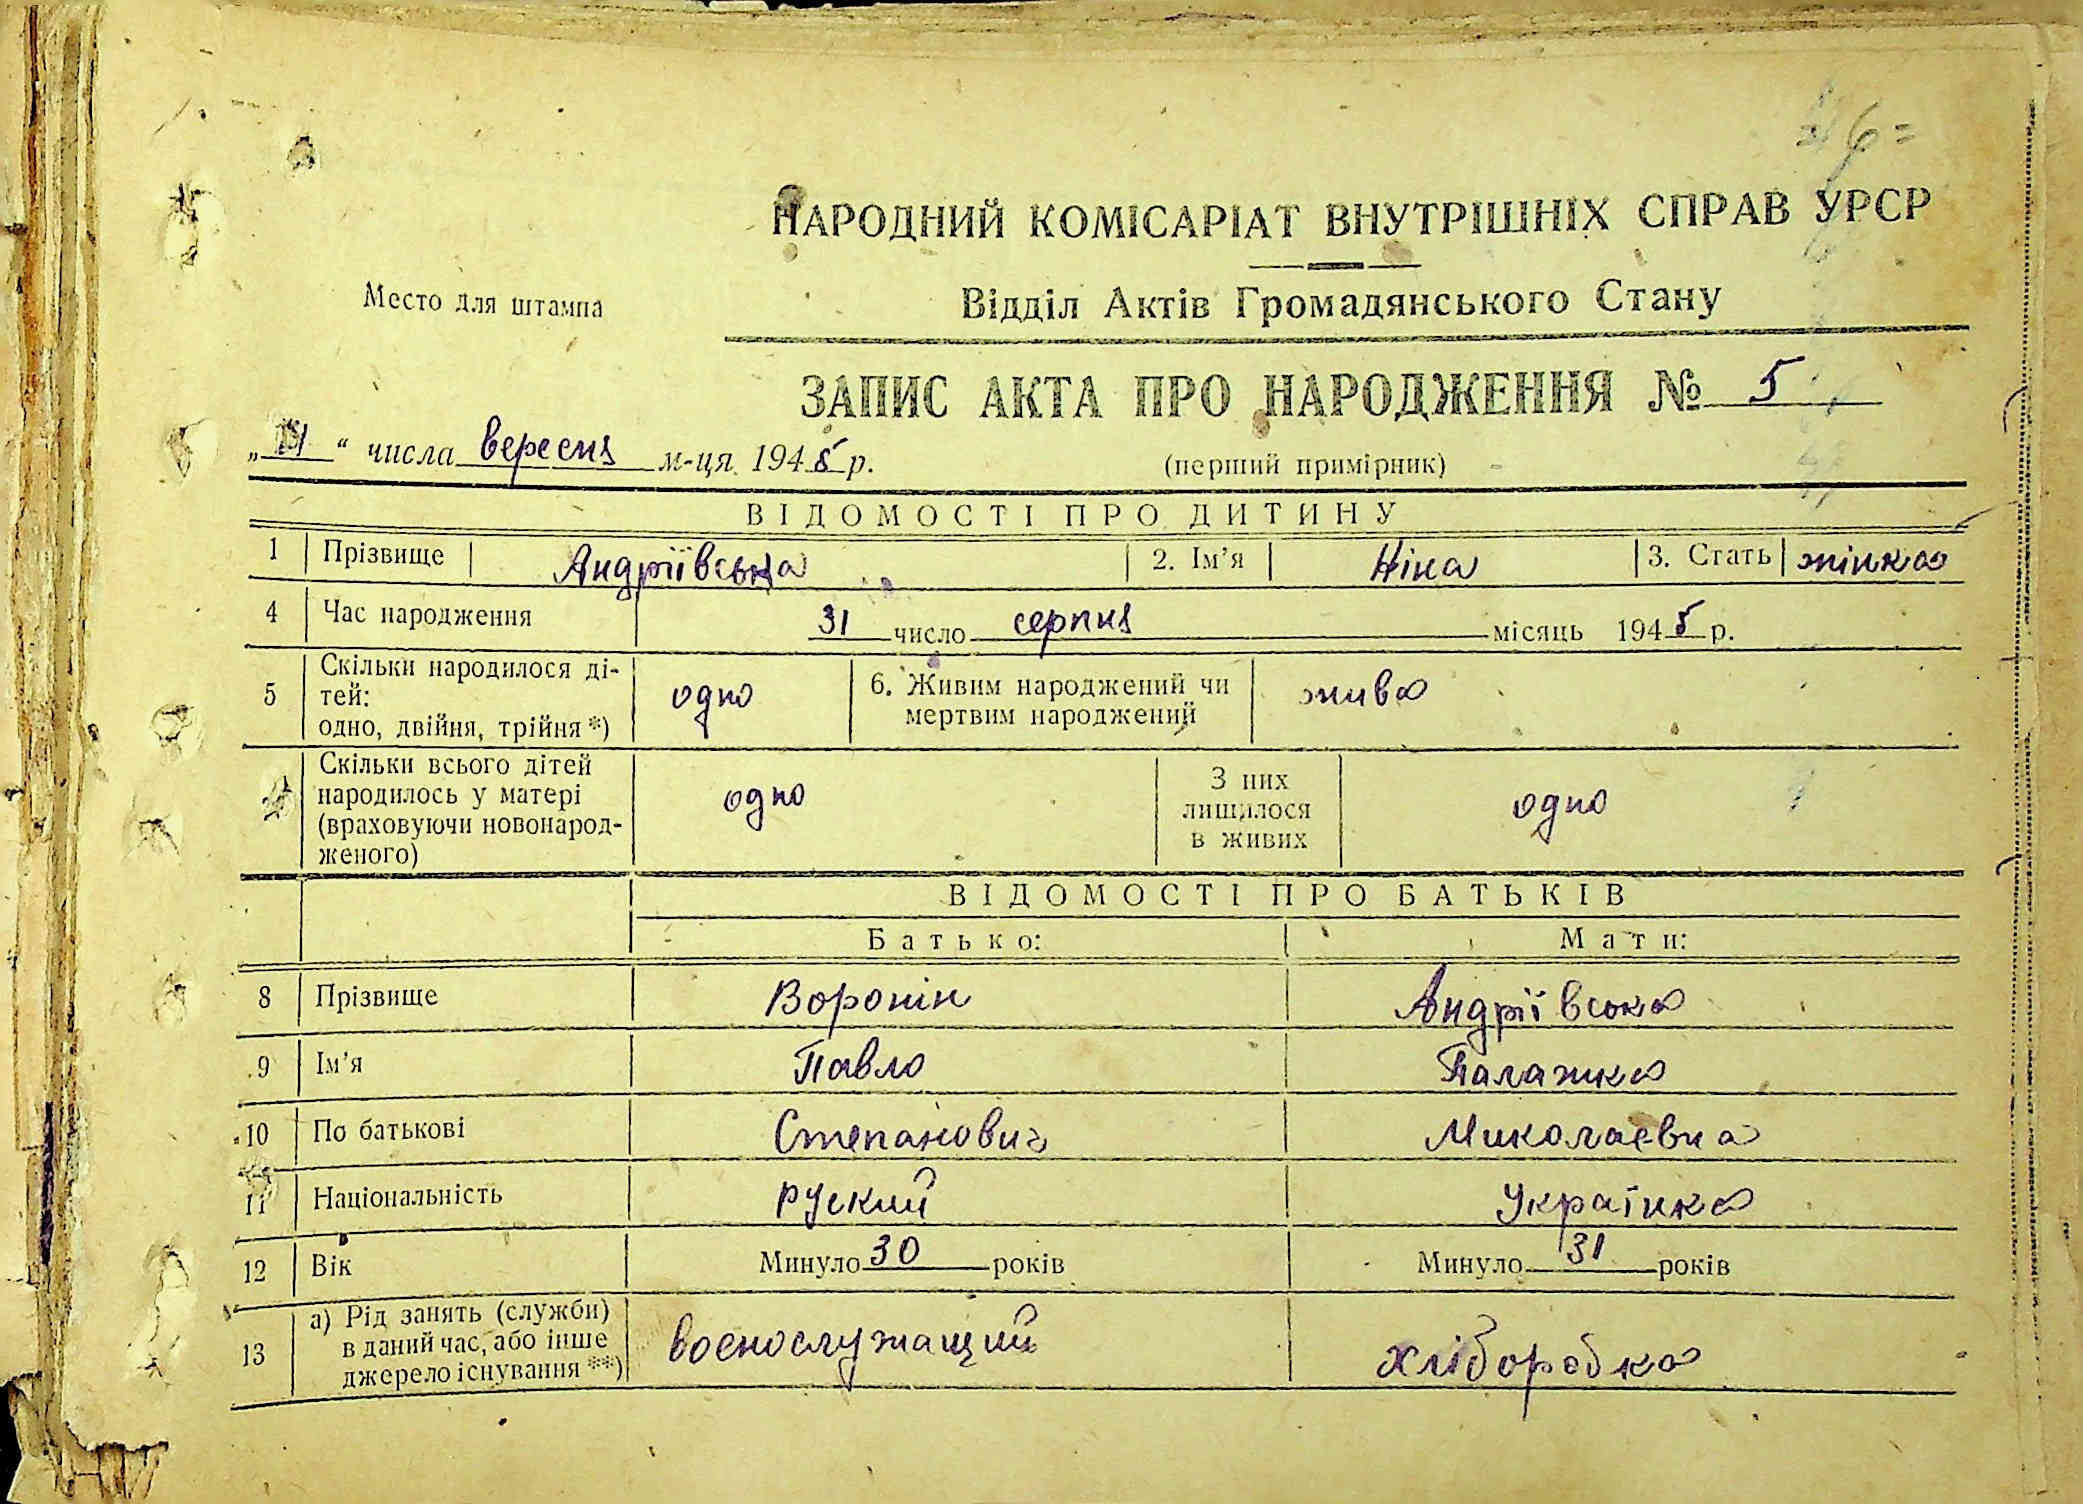 НАРОДНИЙ КОМІСАРІАТ ВНУТРІШНІХ СПРАВ УРСР
Место для штампа
Відділ Актів Громадянського Стану
ЗАПИС АКТА ПРО НАРОДЖЕННЯ № 5
„ “ числа вересня м-ця 1945 р.
(перший примірник)
ВІДОМОСТІ ПРО ДИТИНУ
1 Прізвище Андріївська 2. Ім’я Ніна 3. Стать жінка
4 Час народження 31 число серпня місяць 1945 р.
5 Скільки народилося ді-
тей:
одно, двійня, трійня *) одно
6. Живим народжений чи
мертвим народжений жива
Скільки всього дітей
народилось у матері
(враховуючи новонарод-
женого) одно
З них
лишилося
в живих одно
ВІДОМОСТІ ПРО БАТЬКІВ
Батько: Мати:
8 Прізвище Воронін Андріївська
9 Ім’я Павло Палажка
10 По батькові Степанович Миколаевна
11 Національність руский Українка
12 Вік Минуло 30 років Минуло 31 років
13 а) Рід занять (служби)
в даний час, або інше
джерело існування **) воєнослужащий хліборобка